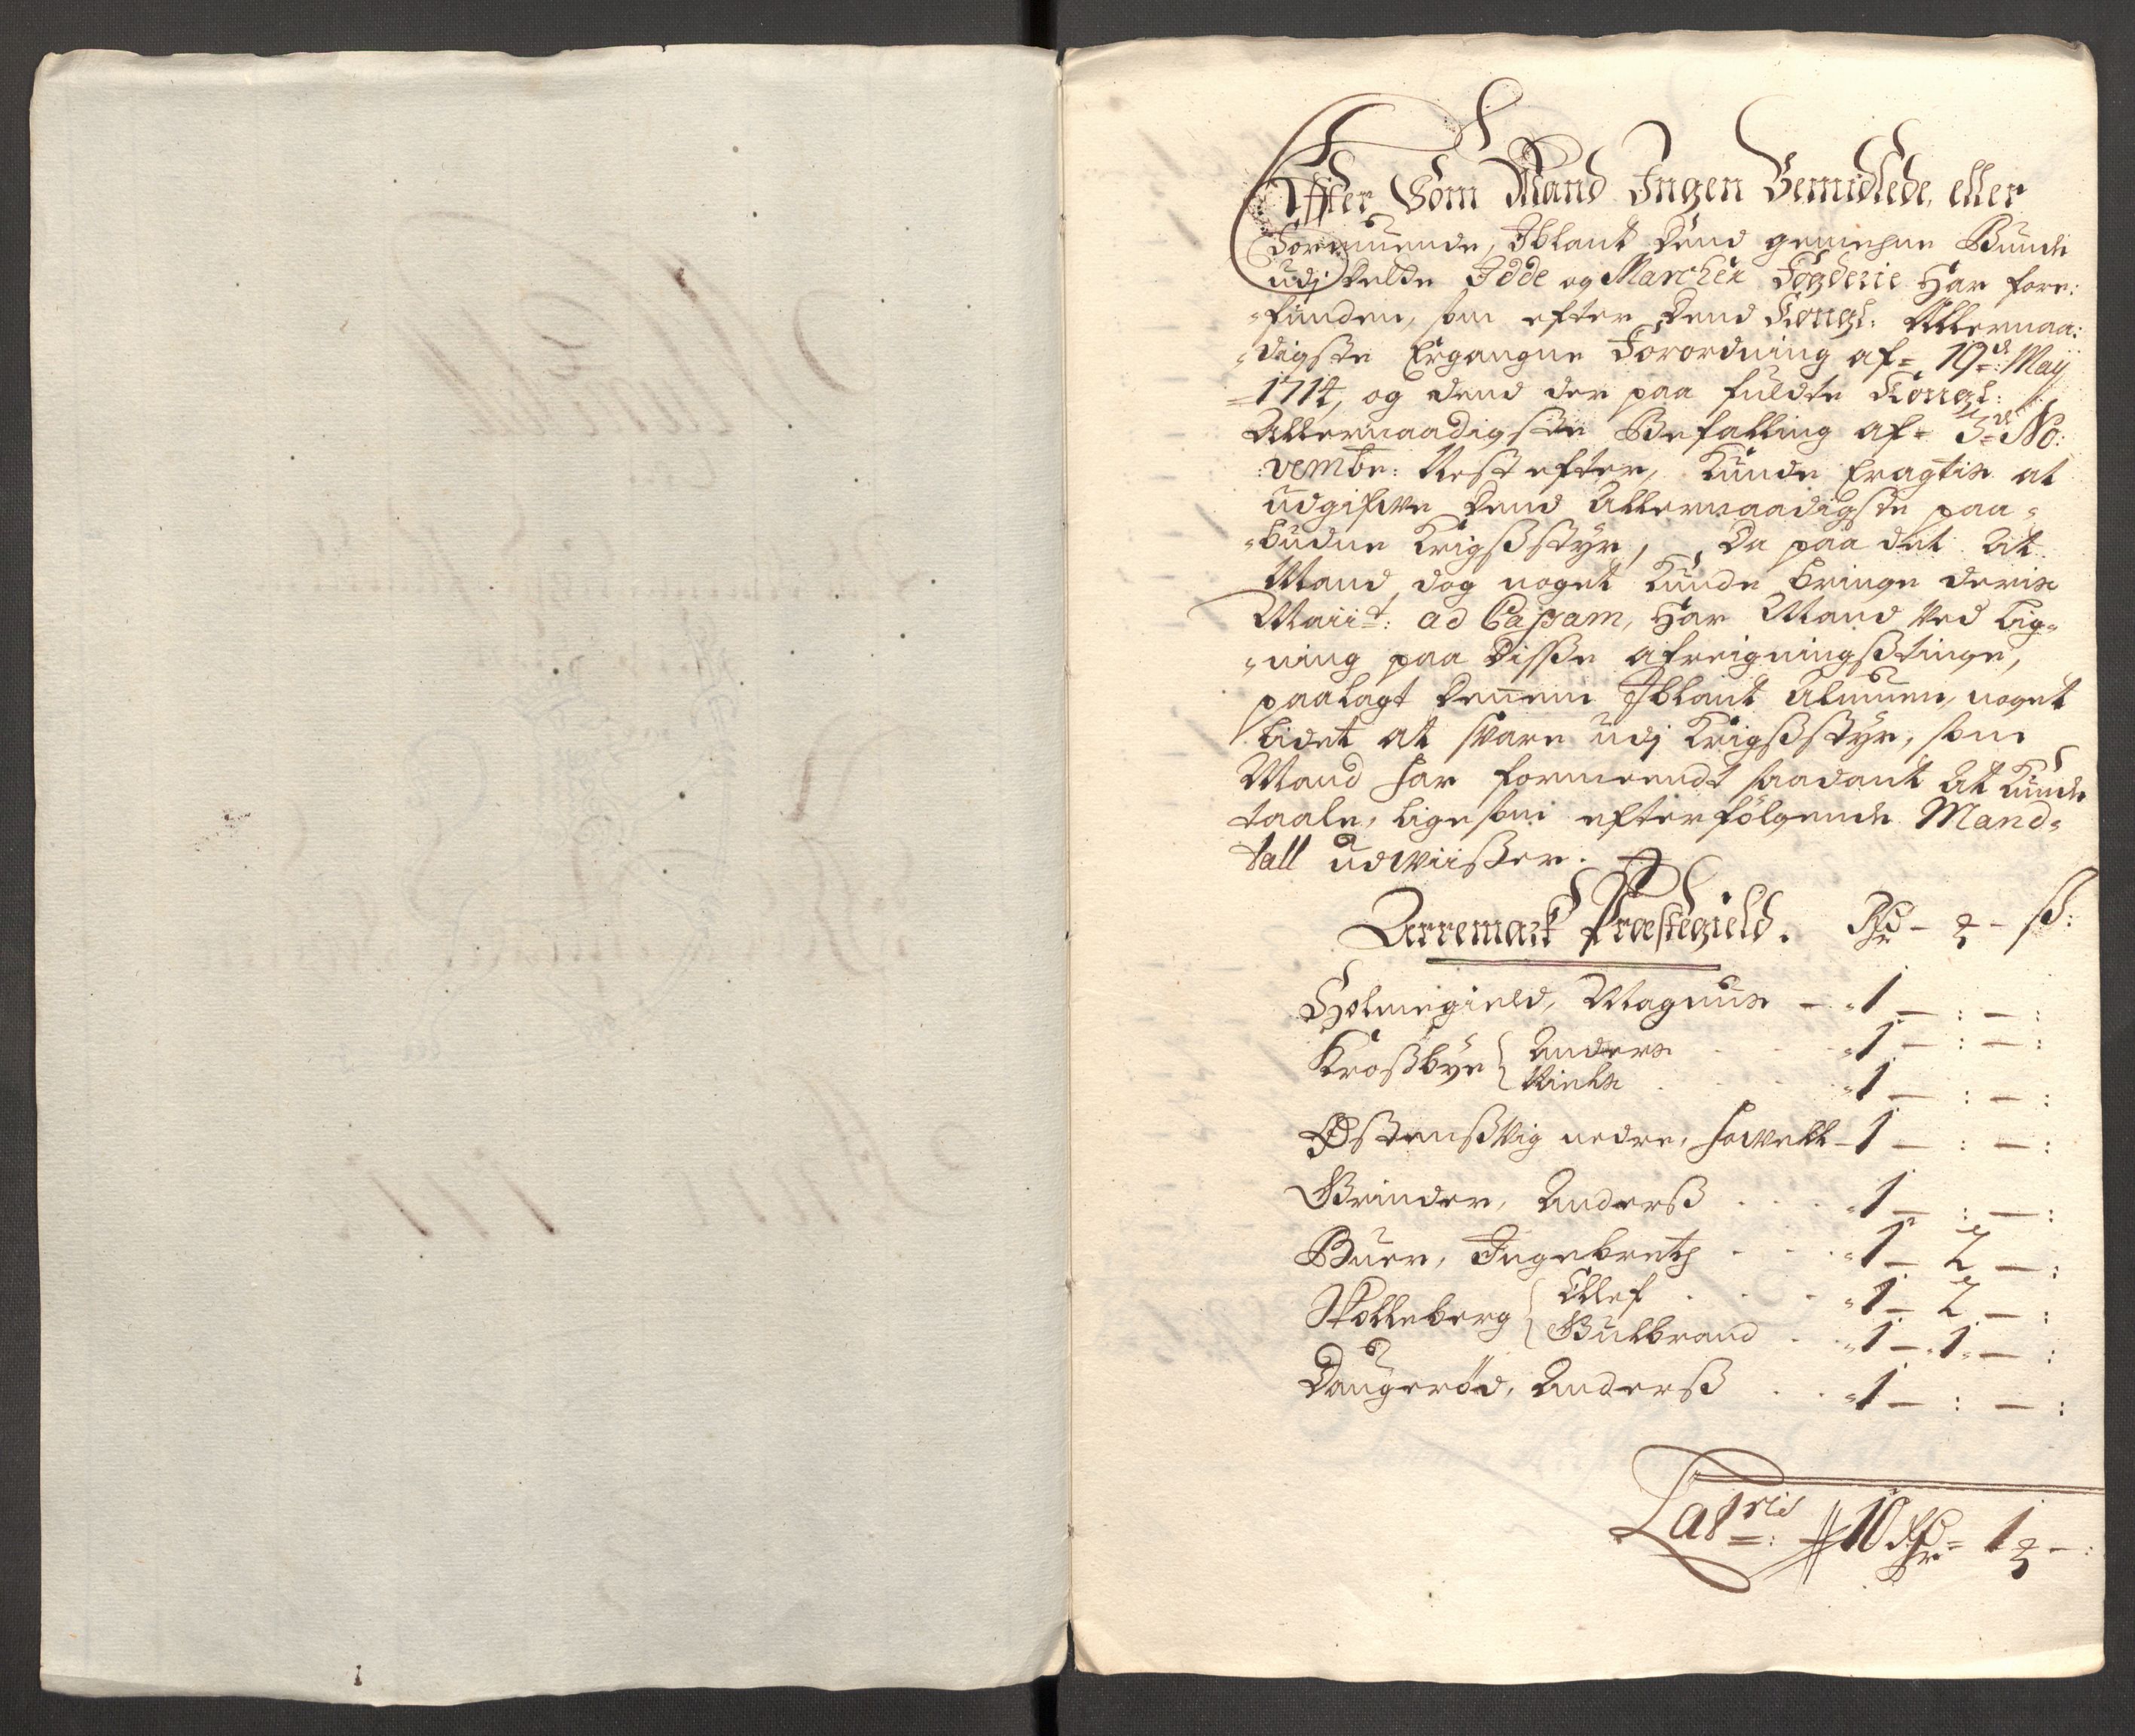 Effter Som Mand Ingen Bemidlede, eller
Formuende, Iblant dend gemehne Bunde
udj dette Idde og Marcker Fogderie Har fore:
funden, som efter dend Kongl: Allernaa:
digste Ergangne Forordning af 19de May
1714, og dend der paa fuldte Kongl:
Allernaadigste Befalling af 3de No:
vembr: Nest efter, Kunde Eragtis at
udgifve dend Allernaadigste paa-
budne Krigsstyr, Da paa det At
Mand dog noget Kunde bringe deris
Maiit: ad Cassam, Har Mand Ved Lig-
ning paa disse afreigningsstinge,
paalagt dennem Iblant Almuen, noget
Lidet at svare udj Krigsstyr, som
Mand har formeendt saadant At Kunde
taale, ligesom efterfølgende Mand-
tall udviisser.
Arremark Præstegield. Rdr - ȝ - ß:
Holmegield, Magnus - 1 - : - :
Krossbye { Anders . . 1 - : - :
Niels . . 1 - : - :
Østensvig nedre, Halvell - 1 - : - :
Grinder, Anderß . . 1 - : - :
Buer, Ingebreth . . 1 - 2 - :
Skolleberg { Ollef . . 1 - 2 - :
Gulbrand . . 1 - 1 - :
Daugerød, Anderß . . 1 - : - :
Latris: 10 Rdr = 1 ȝ - :